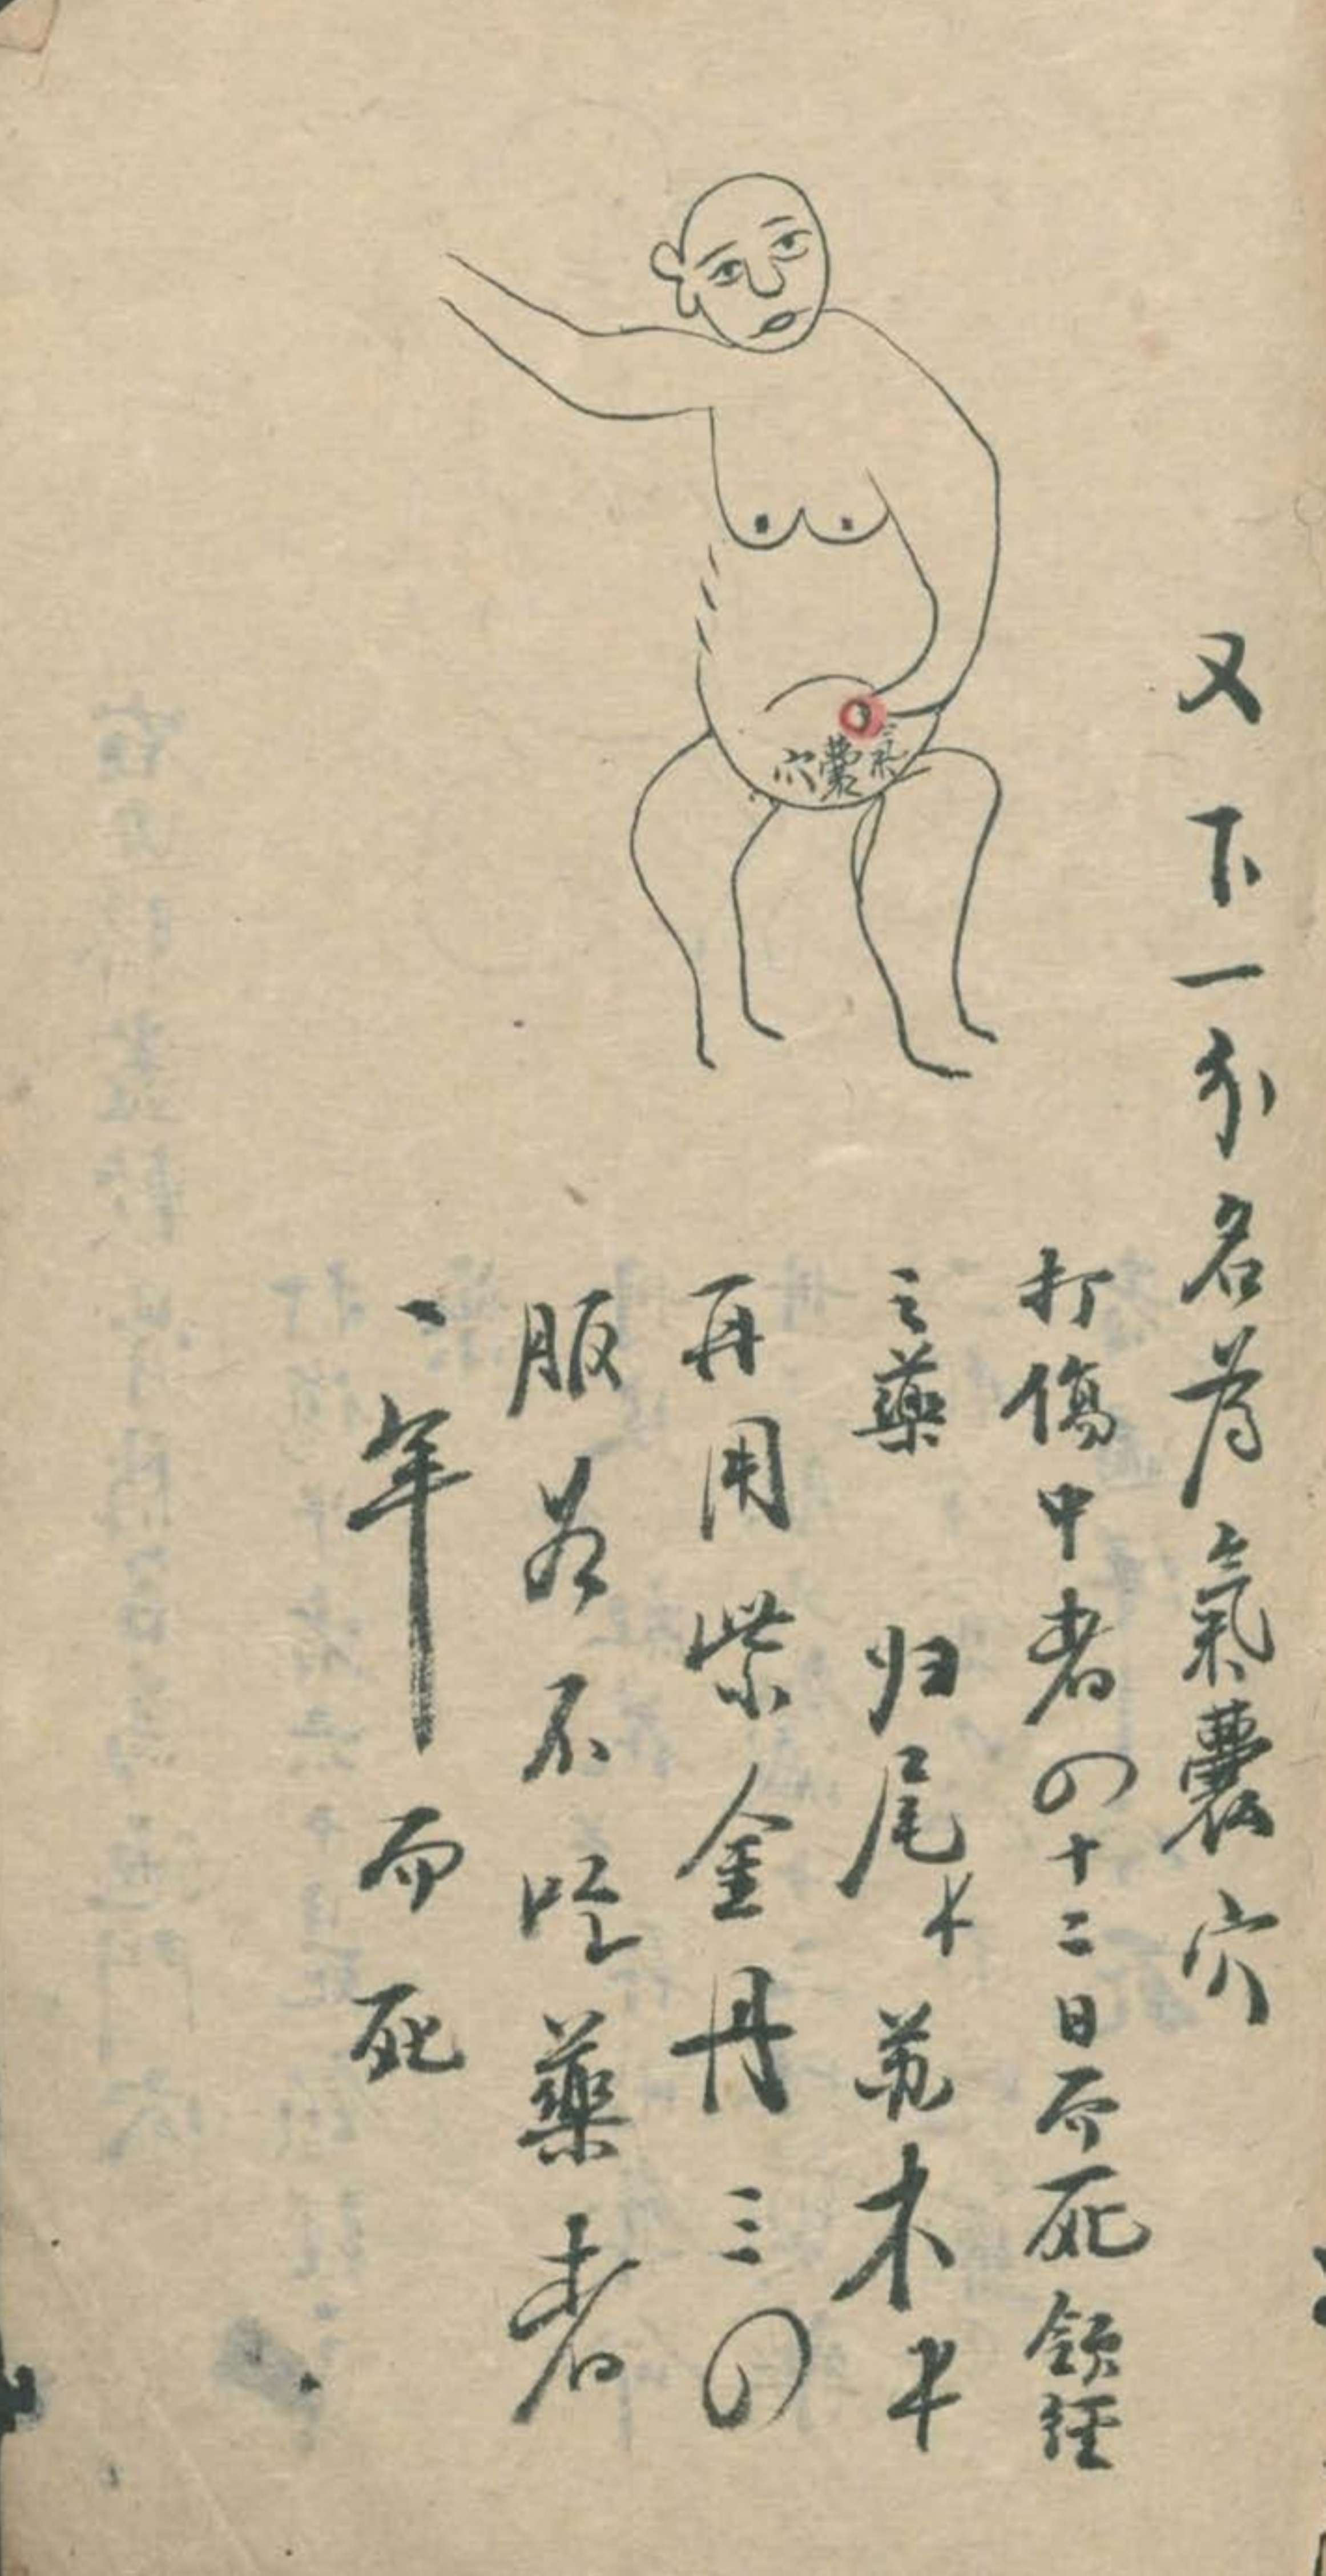 又下一分名为氣囊穴
打傷中者四十二日而死領經
之藥 归尾 苏木
再用紫金丹三四
服若不吃藥者
一年而死
氣囊穴